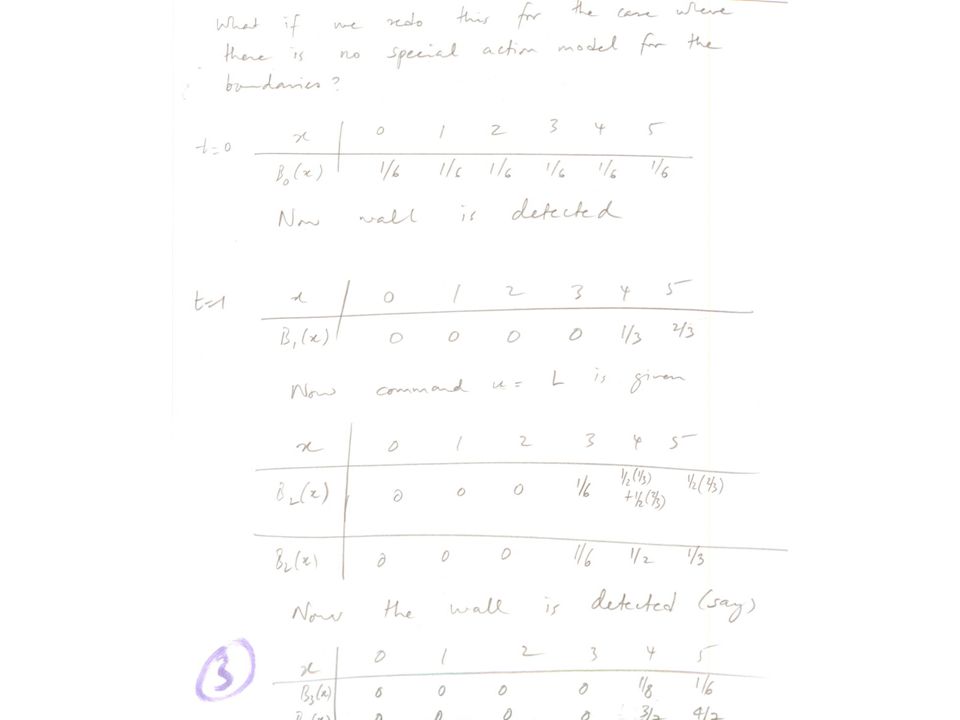 What if we redo this for the case where
there is no special action model for the
boundaries?
t=0 x 0 1 2 3 4 5
B₀(x) 1/6 1/6 1/6 1/6 1/6 1/6
Now wall is detected
t=1 x 0 1 2 3 4 5
B₁(x) 0 0 0 0 1/3 2/3
Now command u = L is given
x 0 1 2 3 4 5
B₂(x) 0 0 0 1/6 1/2(1/3) 1/2(2/3)
+1/2(2/3)
B₂(x) 0 0 0 1/6 1/2 1/3
Now the wall is detected (say)
3 x 0 1 2 3 4 5
B₃(x) 0 0 0 0 1/8 1/6